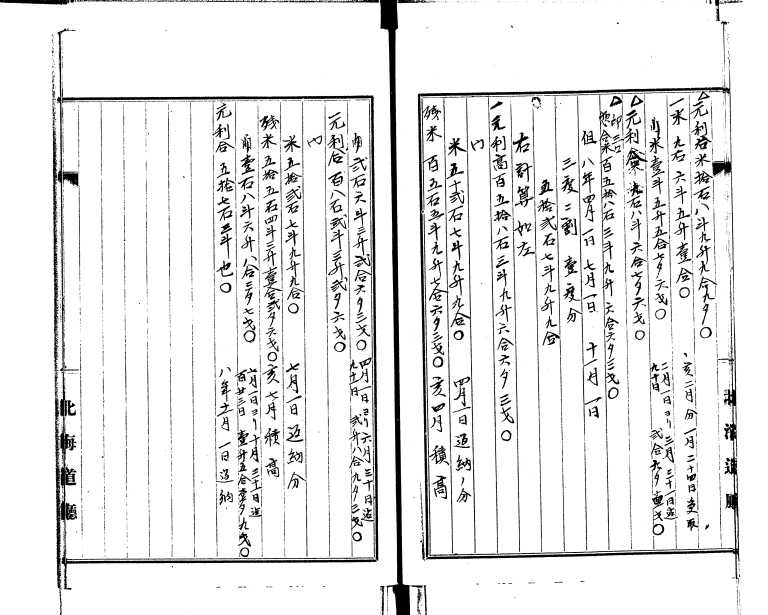 △元利合米拾石八斗九升九合九夕〇
一米九石六斗五升壹合〇 亥二月分一月二十四日受取
利米壹斗五升五合七夕六戈〇 二月一日ヨリ三月三十一日迄
九十日 弐合六夕壹戈〇
△元利合米九石八斗六合七夕六戈〇
△印三口
惣合米百五拾八石三斗九升六合六夕三戈〇
但八年四月一日七月一日十一月一日
三度ニ割壹度分
五拾弐石七斗九升九合
右計算如左
一元利高百五拾八石三斗九升六合六夕三戈〇
内
米五十弐石七斗九升九合〇 四月一日返納ノ分
残米百五石五斗九升七合六夕三戈〇 亥四月積高
利弐石六斗三升弐合六夕三戈〇 四月一日ヨリ六月三十日迄
九十日 弐升八合九夕三戈〇
元利合百八石弐斗三升弐夕六戈〇
内
米五拾弐石七斗九升九合〇 七月一日返納分
残米五拾五石四斗三升壹合弐夕六戈〇 亥七月積高
利壹石八斗六升八合三夕七戈〇 七月一日ヨリ十月三十一日迄
百廿三日 壹升五合壹夕九戈〇
元利合五拾七石三斗也〇 八年十一月一日返納
北海道廳